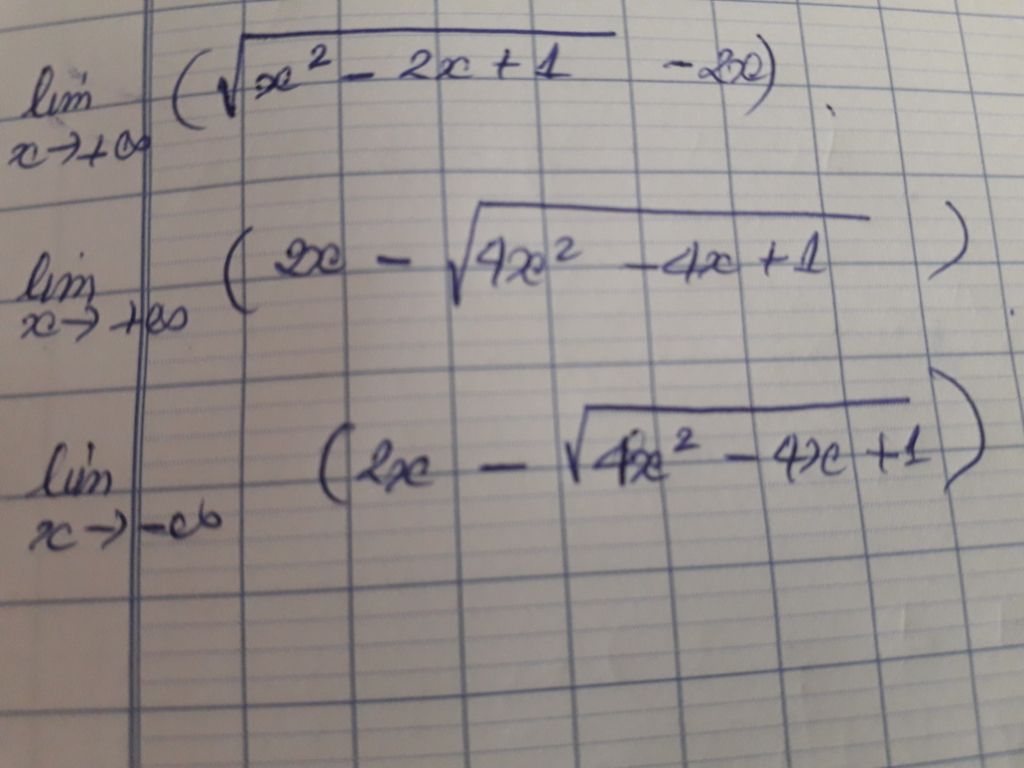 lim (√(x² - 2x + 1) - 2x)
x→+∞
lim (2x - √(4x² - 4x + 1))
x→+∞
lim (2x - √(4x² - 4x + 1))
x→-∞